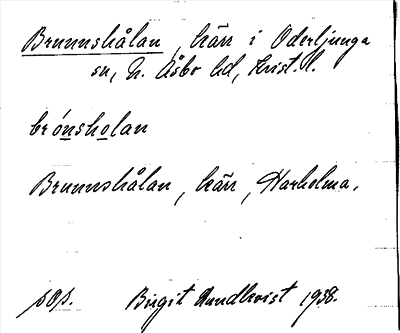 Brunnshålan, kärr i Oderljunga
sn, N. Åsbo hd, Krist. l.
brónsholan
Brunnshålan, kärr, Harholma.
pop. Birgit Rundkvist 1938.